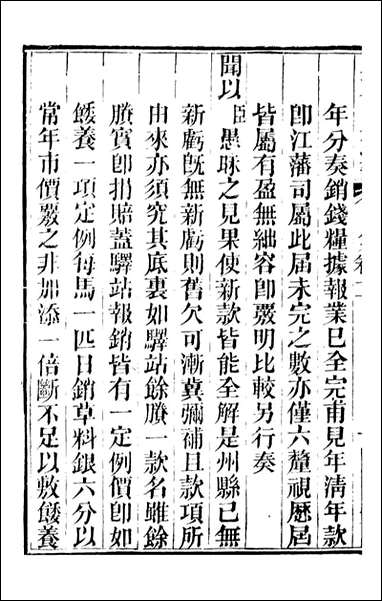 年分奏銷錢糧據報業已全完甫見年清年款
卽江藩司屬此屆未完之數亦僅六釐視歷屆
皆屬有盈無絀容卽覈明比較另行奏
聞以臣愚昧之見果使新款皆能全解是州縣已無
新虧旣無新虧則舊欠可漸冀彌補且款項所
由來亦須究其底裏如驛站餘賸一款名雖餘
賸實卽捐賠蓋驛站報銷皆有一定例價卽如
餧養一項定例每馬一匹日銷草料銀六分以
常年市價覈之非加添一倍斷不足以敷餧養